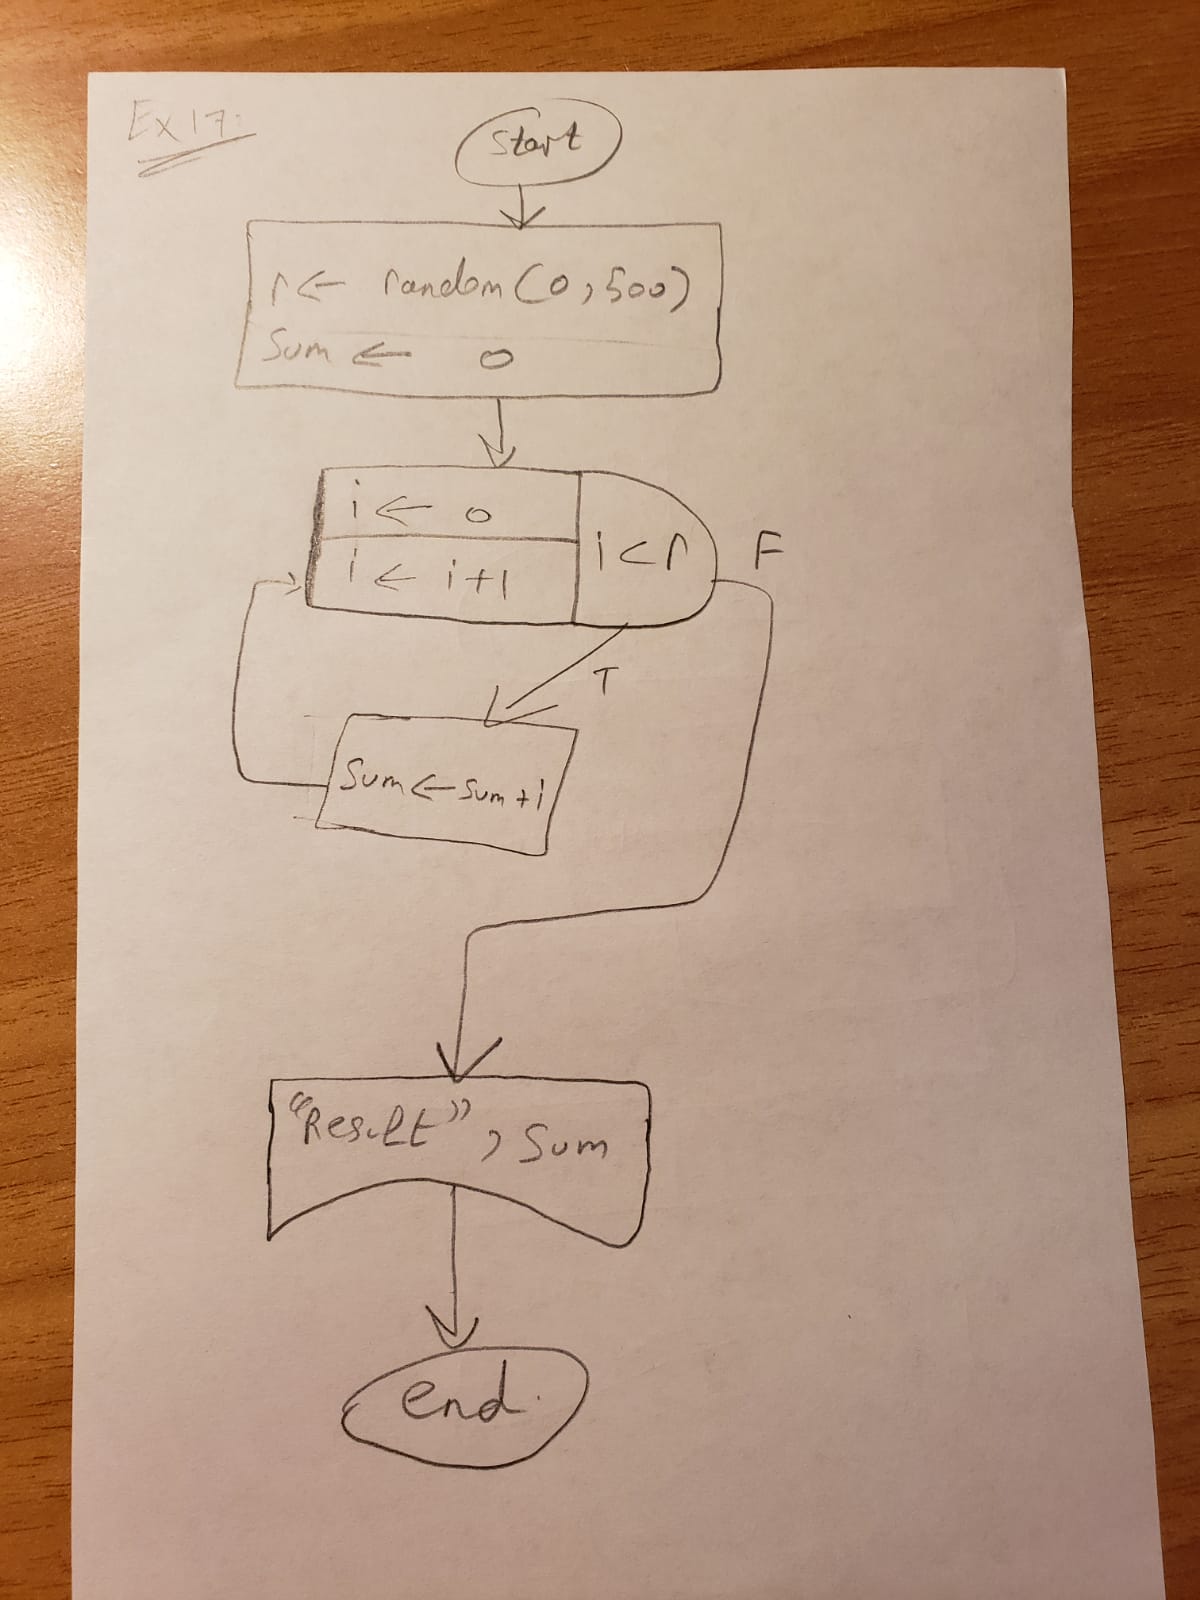 Ex 17:
start
r ← random (0, 500)
Sum ← 0
i ← 0
i ← i+1
i < r
F
T
Sum ← sum + i
"Result", Sum
end.